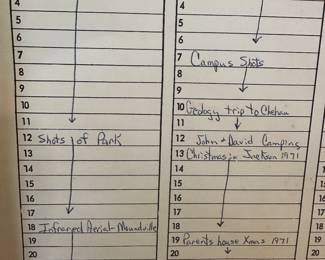 4
5
6
7
8
9
10
11
12 Shots of Park
13
14
15
16
17
18 Infrared Aerial - Moundville
19
20
4
5
6
7 Campus Shots
8
9
10 Geology trip to Chehaw
11
12 John + David Camping
13 Christmas in Jackson 1971
14
15
16
17
18
19 Parents house Xmas 1971
20